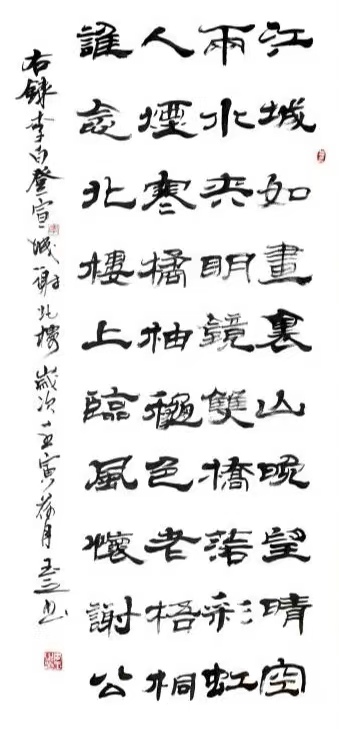 江城如畫裏山晚望晴空
兩水夾明鏡雙橋落彩虹
人煙寒橘柚穐色老梧桐
誰念北樓上臨風懷謝公
右録李白登宣城謝北樓歲次壬寅荷月玉書